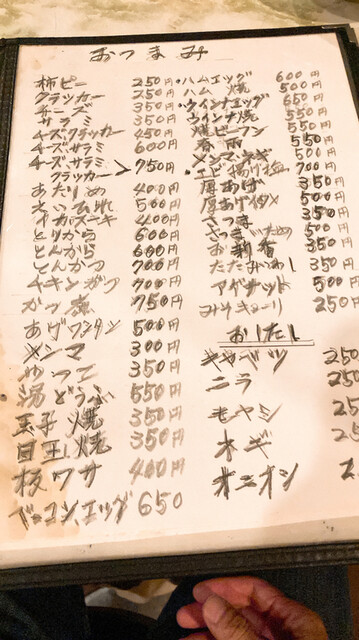 おつまみ
柿ピー 250円
クラッカー 250円
チーズ 350円
サラミ 350円
チーズクラッカー 450円
チーズサラミ 600円
チーズ、サラミ
クラッカー > 750円
あたりめ 400円
えいひれ 500円
イカスミーキ 400円
とりから 600円
とんから 600円
とんかつ 700円
チキンカツ 700円
カツ煮 750円
あげワンタン 500円
メンマ 300円
ゆでてこ 350円
湯どうふ 550円
玉子焼 350円
目玉焼 350円
板ワサ 400円
ベーコンエッグ 650
・ハムエッグ 600円
ハム焼 500円
・ウインナエッグ 650円
ウインナ焼 550円
焼ビーフン 550円
春雨 550円
メンマネギ 500円
・エビ揚げ塩 700円
厚あげ 350円
厚あげ煮 500円
さつま 350円
さつまいため 500円
お新香 350円
たたみいわし 350円
アゲナット 500円
みそきゅーり 250円
おしたし
キャベツ 250
ニラ 350
モヤシ 25
ネギ 2
オニオン 2